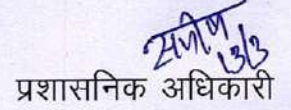 13/3
प्रशासनिक अधिकारी